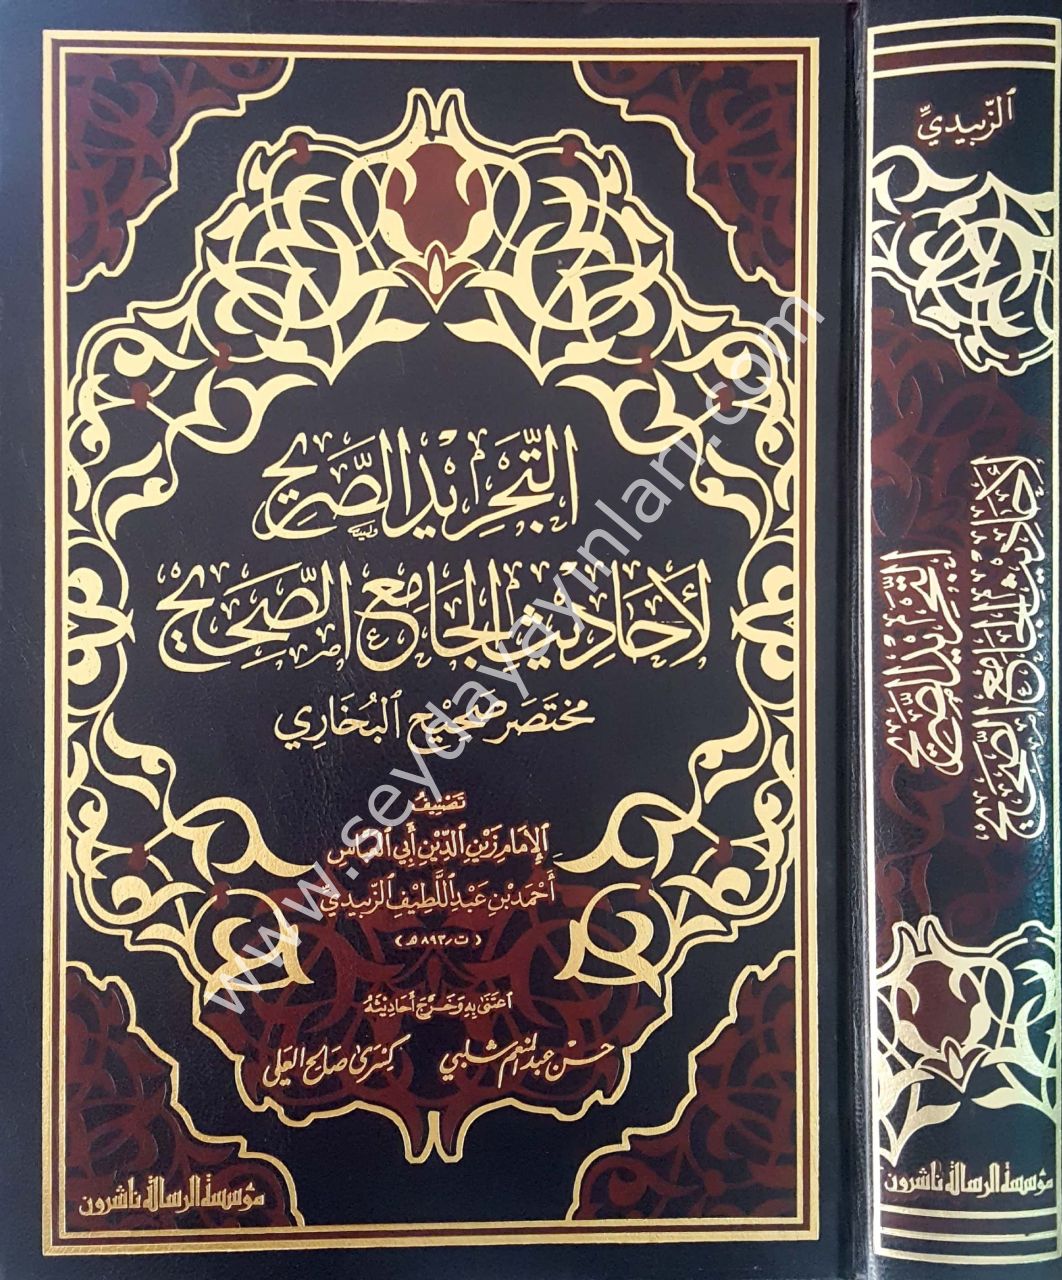 التَّجْرِيْد الصَّرِيح
لأَحَادِيْثِ الجَامِعِ الصَّحِيْحِ
مختصر صَحِيْح البُخَاري
تَصْنِيْفُ
الإِمَام زَيْنِ الدِّيْنِ أَبي العَبَّاسِ
أَحْمَد بْنِ عَبْدِ اللَّطِيْفِ الزَّبِيْدِيِّ
(ت ٨٩٣ هـ)
اعتَنَى بِهِ وَخَرَّجَ أَحَادِيْثَهُ
حسن عبد المنعم شلبي كِسْرَى صَالح العَلي
مؤسسة الرسالة ناشرون
الزَّبيديِّ
التَّجْرِيْد الصَّرِيح
لأَحَادِيْثِ الجَامِعِ الصَّحِيْحِ
مؤسسة الرسالة ناشرون
www.seydayayinlari.com